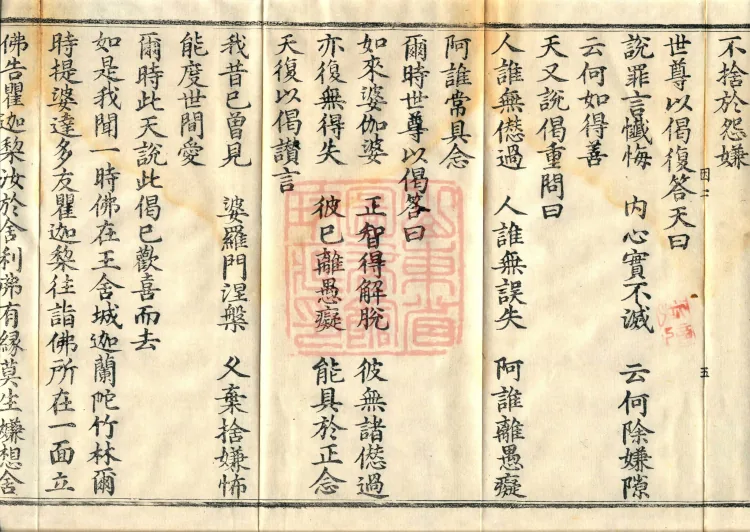 不捨於怨嫌
因二 五
世尊以偈復答天曰
說罪言懺悔 內心實不滅 云何除嫌隙
云何如得善
天又說偈重問曰
人誰無愆過 人誰無誤失 阿誰離愚癡
阿誰常具念
爾時世尊以偈答曰
如來婆伽婆 正智得解脫 彼無諸愆過
亦復無得失 彼已離愚癡 能具於正念
天復以偈讚言
我昔已曾見 婆羅門涅槃 久棄捨嫌怖
能度世間愛
爾時此天說此偈已歡喜而去
如是我聞一時佛在王舍城迦蘭陀竹林爾
時提婆達多友瞿迦棃往詣佛所在一面立
佛告瞿迦棃汝於舍利弗有緣莫生嫌想舍